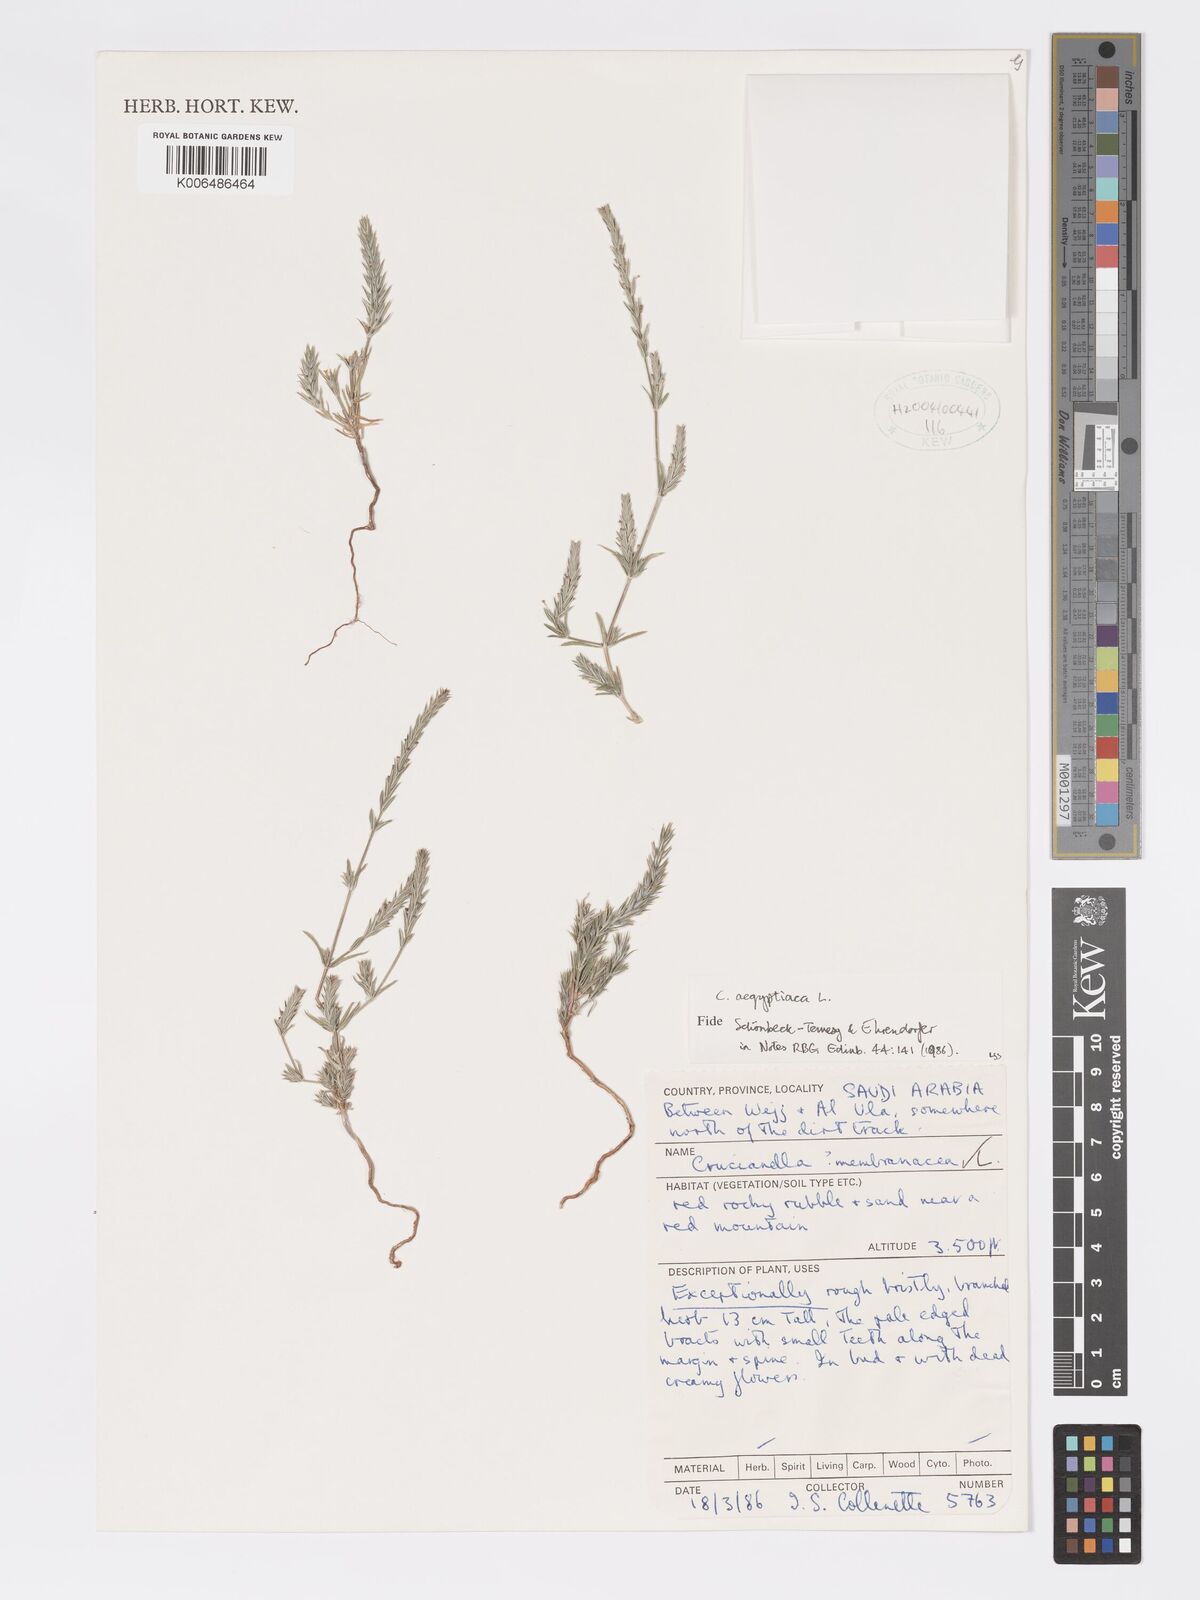 HERB. HORT. KEW.
ROYAL BOTANIC GARDENS KEW
K006486464
ROYAL BOTANIC GARDENS
H2004/00441
116
KEW
C. aegyptiaca L.
Fide Schönbeck-Temesy & Ehrendorfer
in Notes RBG. Edinb. 44:141 (1986).
COUNTRY, PROVINCE, LOCALITY SAUDI ARABIA
Between Wejj + Al Ula, somewhere
north of the dirt track.
NAME
Crucianella ?membranacea L.
HABITAT (VEGETATION/SOIL TYPE ETC.)
red rocky rubble + sand near a
red mountain
ALTITUDE 3.500 ft.
DESCRIPTION OF PLANT, USES
Exceptionally rough bristly, branched
herb 13 cm tall, the pale edged
bracts with small teeth along the
margin + spine. In bud + with dead
creamy flowers.
MATERIAL Herb. Spirit Living Carp. Wood Cyto. Photo.
DATE COLLECTOR NUMBER
18/3/86 I. S. Collenette 5763
Density
Don Williams
M001297
centimeters
Royal Botanic Gardens
Kew
0 1 2 3 4 5 6 7 8 9 10
cm
copyright reserved